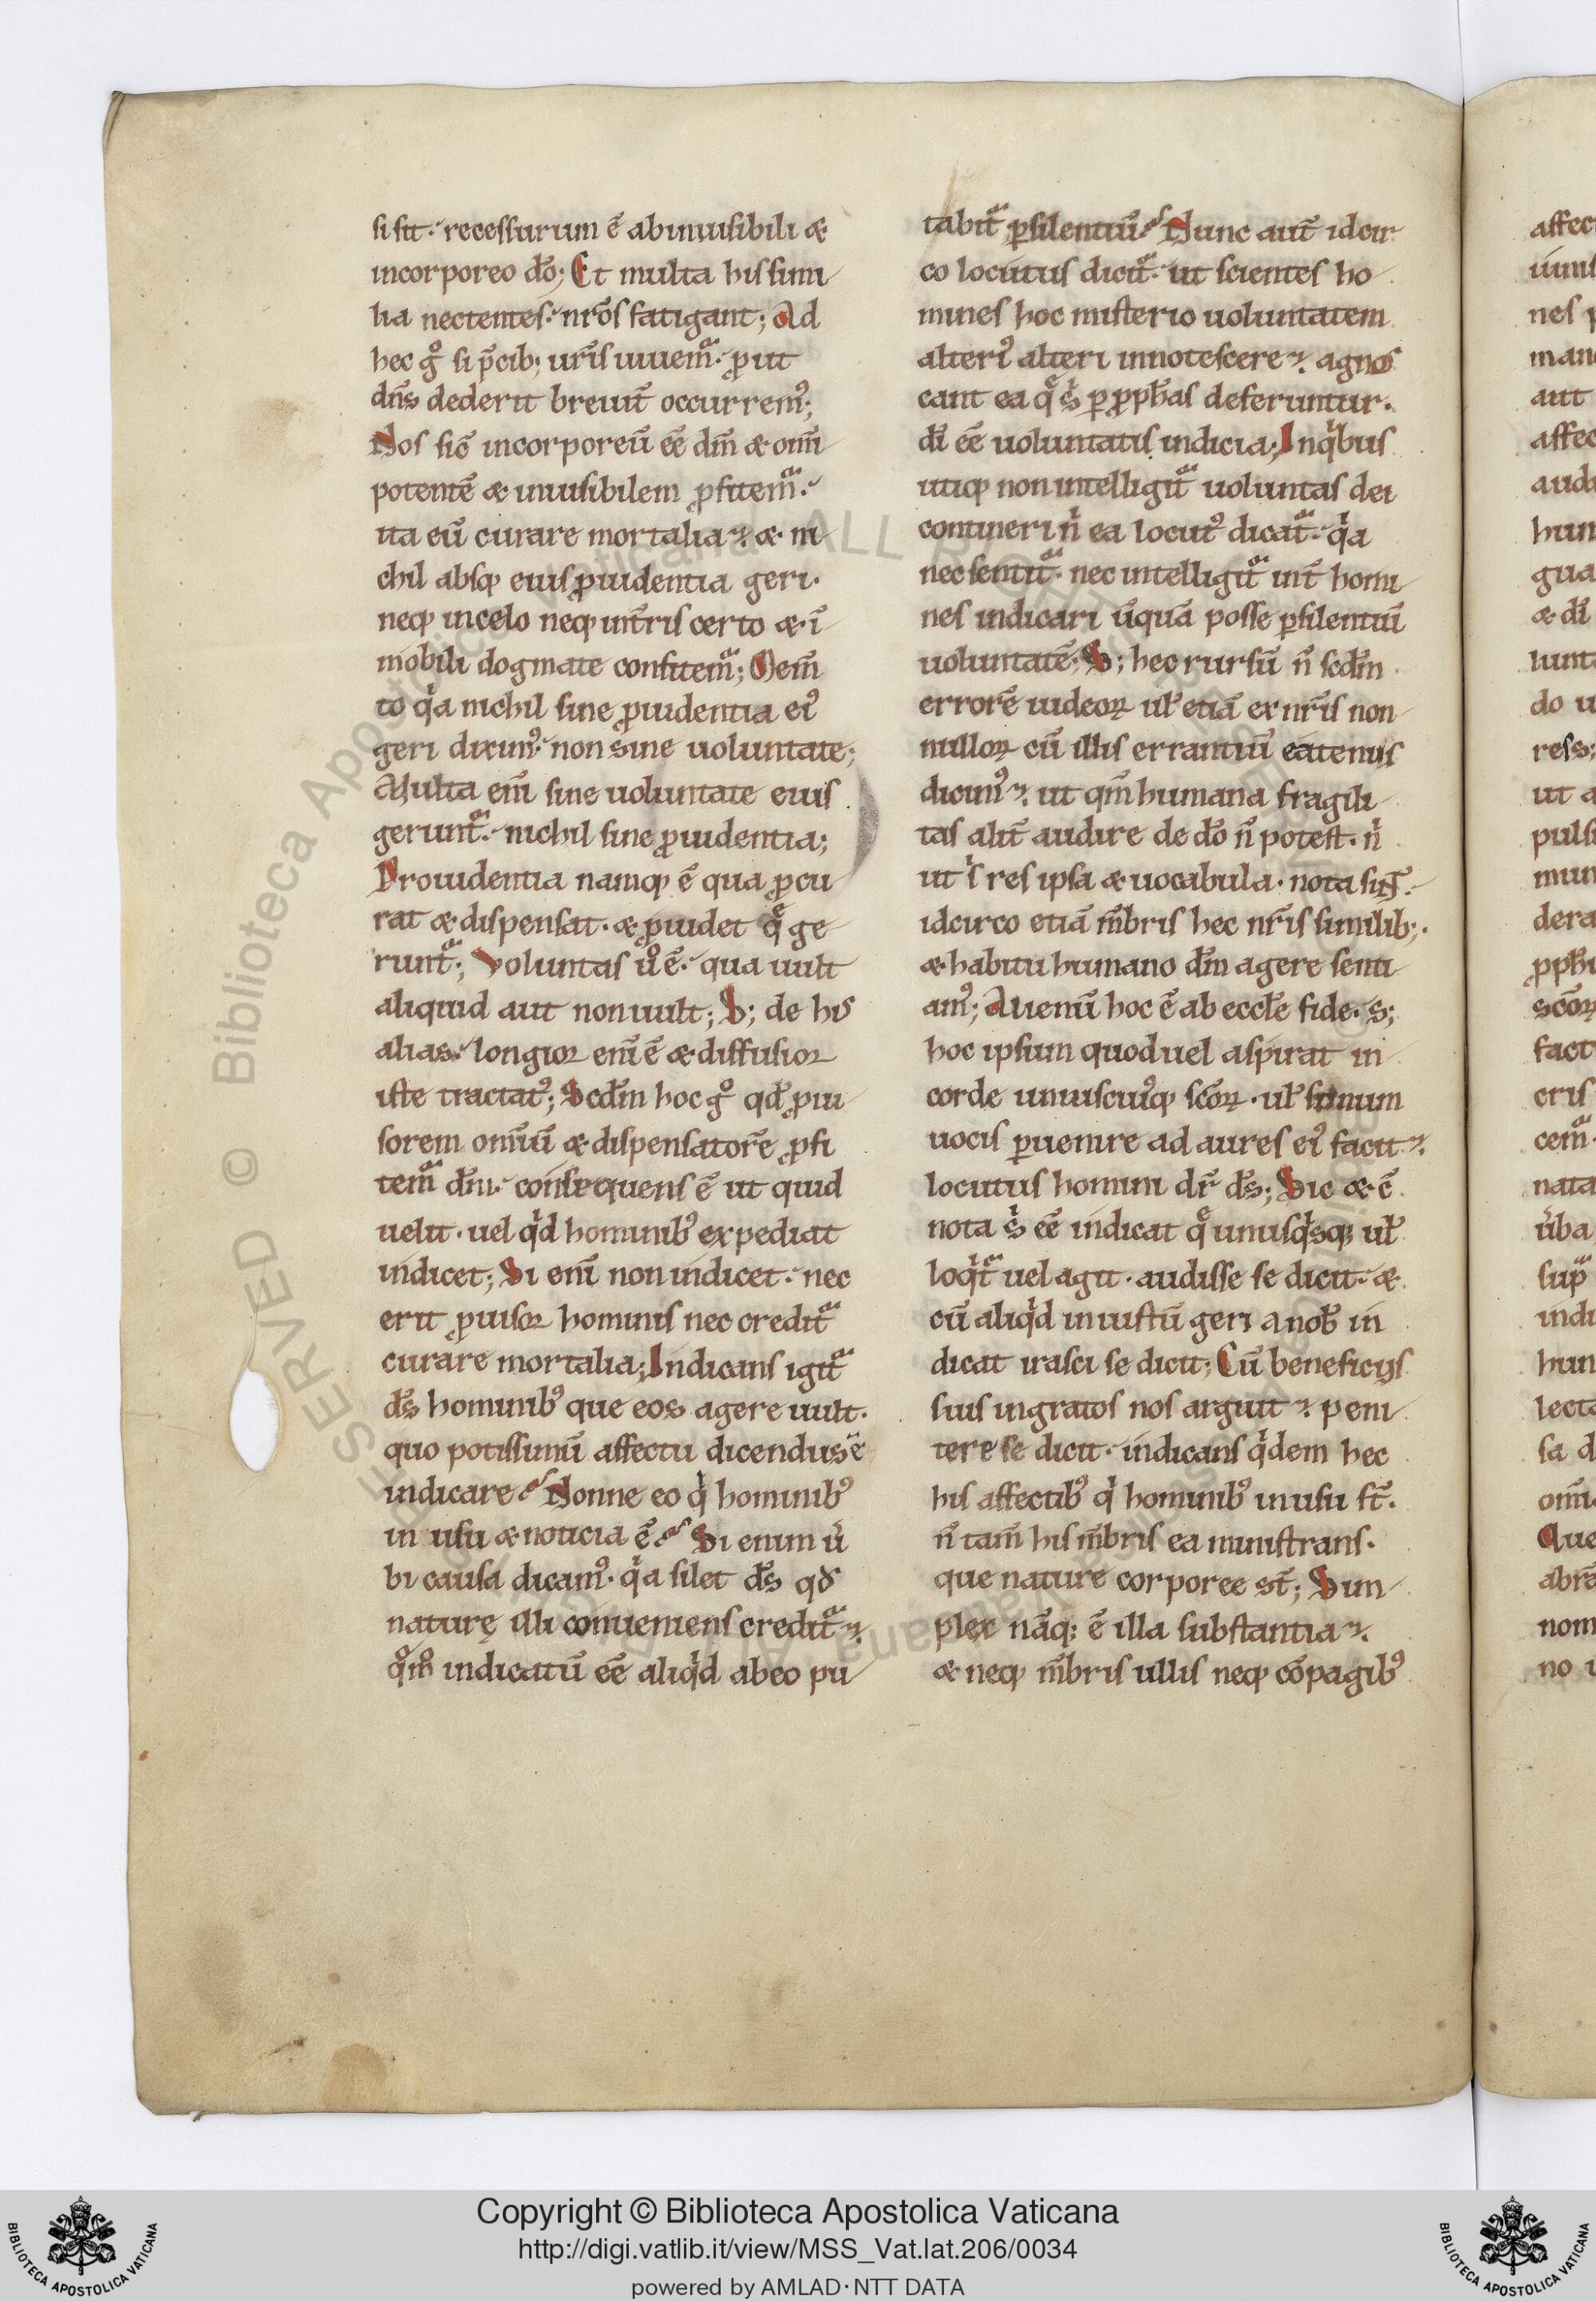 si sit. recessurum ē abinuisibili &
incorporeo dō; Et multa hissimi
lia nectentes. nr̄os fatigant; Ad
hec gͦ si p̄cib; ur̄is iuuemᷓ. ꝓut
dn̄s dederit breuit̄ occurremꝰ;
Nos sic̄ incorporeū eē dm̄ & om̄i
potentē & inuisibilem ꝓfitemᷓ.
ita eū curare mortalia. & ni
chil absqꝫ eius ꝓuidentia geri.
neqꝫ incelo neqꝫ int̄ris certo & ī
mobili dogmate confitemᷓ; Mem̄
to qͥa nichil sine ꝓuidentia eiꝰ
geri diximꝰ. non sine uoluntate;
Multa em̄ sine uoluntate eius
gerunt̄ᷓ. nichil sine ꝓuidentia;
Prouidentia namqꝫ ē qua ꝓcu
rat & dispensat. & ꝓuidet qͤ ge
runtᷓ; Voluntas uͦ ē. qua uult
aliquid aut non uult; S; de his
alias. longior eni ē & diffusior
iste tractatꝰ; Scdm̄ hoc gͦ qd̄ ꝓui
sorem omīū & dispensatorē ꝓfi
temᷓ dm̄. consequens ē ut quid
uelit. uel qͥd hominibꝰ expediat
indicet; Si eni non indicet. nec
erit ꝓuisor hominis nec creditᷓ
curare mortalia; Indicans igitᷓ
ds̄ hominibꝰ que eos agere uult.
quo potissimū affectu dicendus ē
indicare? Nonne eo qͥ hominibꝰ
in usu & noticia ē? Si enim uͥ
bi causa dicamꝰ. qͥa silet ds̄ qd̄
naturę illi conueniens creditᷓ.
qͦmͦ indicatū eē aliqͥd abeo pu
tabitᷓ ꝑsilentiū? Nunc aut̄ idcir
co locutus dicitᷓ. ut scientes ho
mines hoc misterio uoluntatem
alteriꝰ alteri innotescere. agnos
cant ea qͤ sͥ ꝑ ꝓph̄as deferuntur.
dī eē uoluntatis indicia; Inqͥbus
utiqꝫ non intelligitᷓ uoluntas dei
contineri nͥ ea locutꝰ dicatᷓ. qͥa
nec sentitᷓ. nec intelligitᷓ int̄ homi
nes indicari ūquā posse ꝑsilentiū
uoluntatē; S; hec rursū n̄ scdm̄
errorē iudeoꝝ ul̄ etiā ex nr̄is non
nulloꝝ cū illis errantiū eatenus
dicimꝰ. ut qm̄ humana fragili
tas alit̄ audire de dō n̄ potest. nͥ
ut sͥ res ipsa & uocabula. nota sūt.
idcirco etiā m̄bris hec nr̄is similib;.
& habitu humano dm̄ agere senti
amꝰ; Alienū hoc ē ab eccle fide. s;
hoc ipsum quod uel aspirat in
corde uniuscuiꝰqꝫ scōꝝ. ul̄ sonum
uocis ꝑuenire ad aures eiꝰ facit.
locutus homini dr̄ ds̄; Sic & ē
nota sͥ eē indicat qͤ unusqͥsqꝫ ul̄
loqͥtᷓ uel agit. audisse se dicit. &
cū aliqͥd iniustū geri anob̄ in
dicat irasci se dicit; Cū beneficijs
suis ingratos nos arguit. peni
tere se dicit. indicans qͥdem hec
his affectibꝰ qͥ hominibꝰ inusu st̄.
n̄ tam̄ his m̄bris ea ministrans.
que nature corporee st̄; Sim
plex nāqꝫ ē illa substantia.
& neqꝫ m̄bris ullis neqꝫ cōpagibꝰ
Copyright © Biblioteca Apostolica Vaticana
http://digi.vatlib.it/view/MSS_Vat.lat.206/0034
powered by AMLAD·NTT DATA